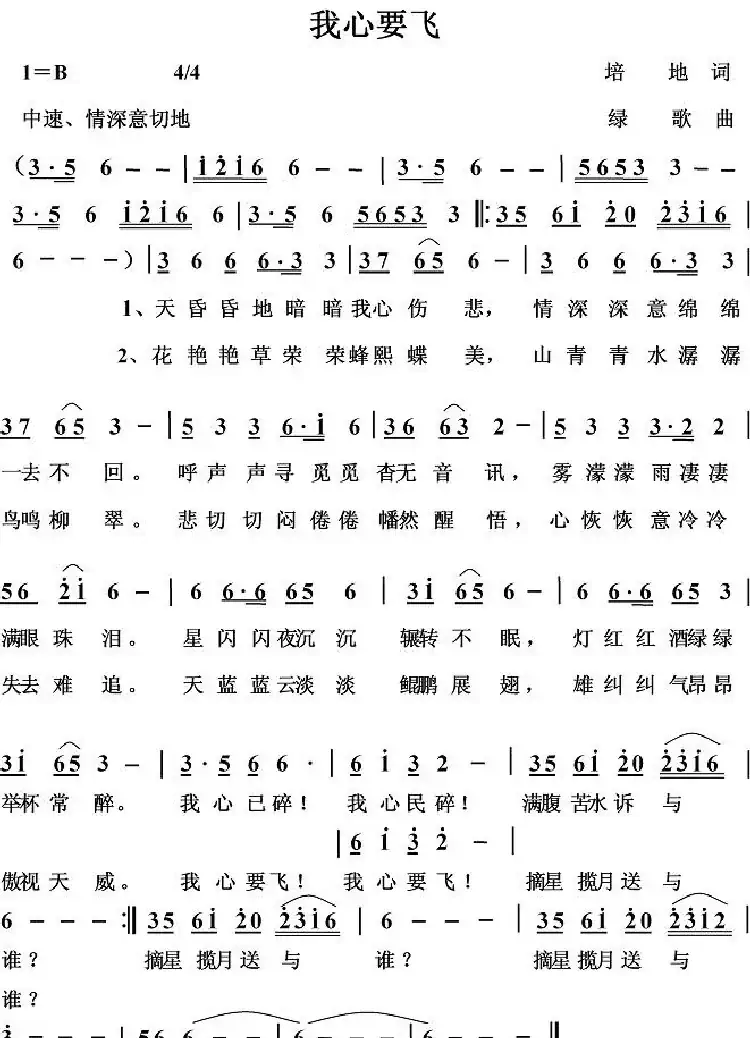 我心要飞
1＝B 4/4 培 地 词
中速、情深意切地 绿 歌 曲
（3·5 6 - - | 1216 6 - - | 3·5 6 - - | 5653 3 - -
3·5 6 1216 6 | 3·5 6 5653 3 ‖: 35 61 20 2316 |
6 - - - ）| 3 6 6 6·3 3 | 37 65 6 - | 3 6 6 6·3 3 |
1、天昏昏地暗暗我心伤悲，情深深意绵绵
2、花艳艳草荣荣蜂熙蝶美，山青青水潺潺
37 65 3 - | 5 3 3 6·1 6 | 36 63 2 - | 5 3 3 3·2 2 |
一去不回。呼声声寻觅觅杳无音讯，雾濛濛雨凄凄
鸟鸣柳翠。悲切切闷倦倦幡然醒悟，心恢恢意冷冷
56 21 6 - | 6 6·6 65 6 | 31 65 6 - | 6 6·6 65 3 |
满眼珠泪。星闪闪夜沉沉辗转不眠，灯红红酒绿绿
失去难追。天蓝蓝云淡淡鲲鹏展翅，雄纠纠气昂昂
31 65 3 - | 3·5 6 6· | 6 1 3 2 - | 35 61 20 2316 |
举杯常醉。我心已碎！我心民碎！满腹苦水诉与
| 6 1 3 2 - |
傲视天威。我心要飞！我心要飞！摘星揽月送与
6 - - - :‖ 35 61 20 2316 | 6 - - - | 35 61 20 2312 |
谁？ 摘星揽月送与谁？ 摘星揽月送与
谁？
3 - - - | 56 6 - - | 6 - - - | 6 - - - ‖